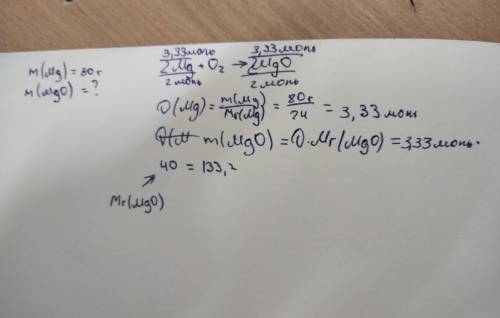 m(Mg) = 80г
m(MgO) = ?
3,33моль 3,33моль
2Mg + O₂ → 2MgO
2моль 2моль
υ(Mg) = m(Mg)/Mr(Mg) = 80г/24 = 3,33моль
m(MgO) = υ·Mr(MgO) = 3,33моль·
40 = 133,2
Mr(MgO)